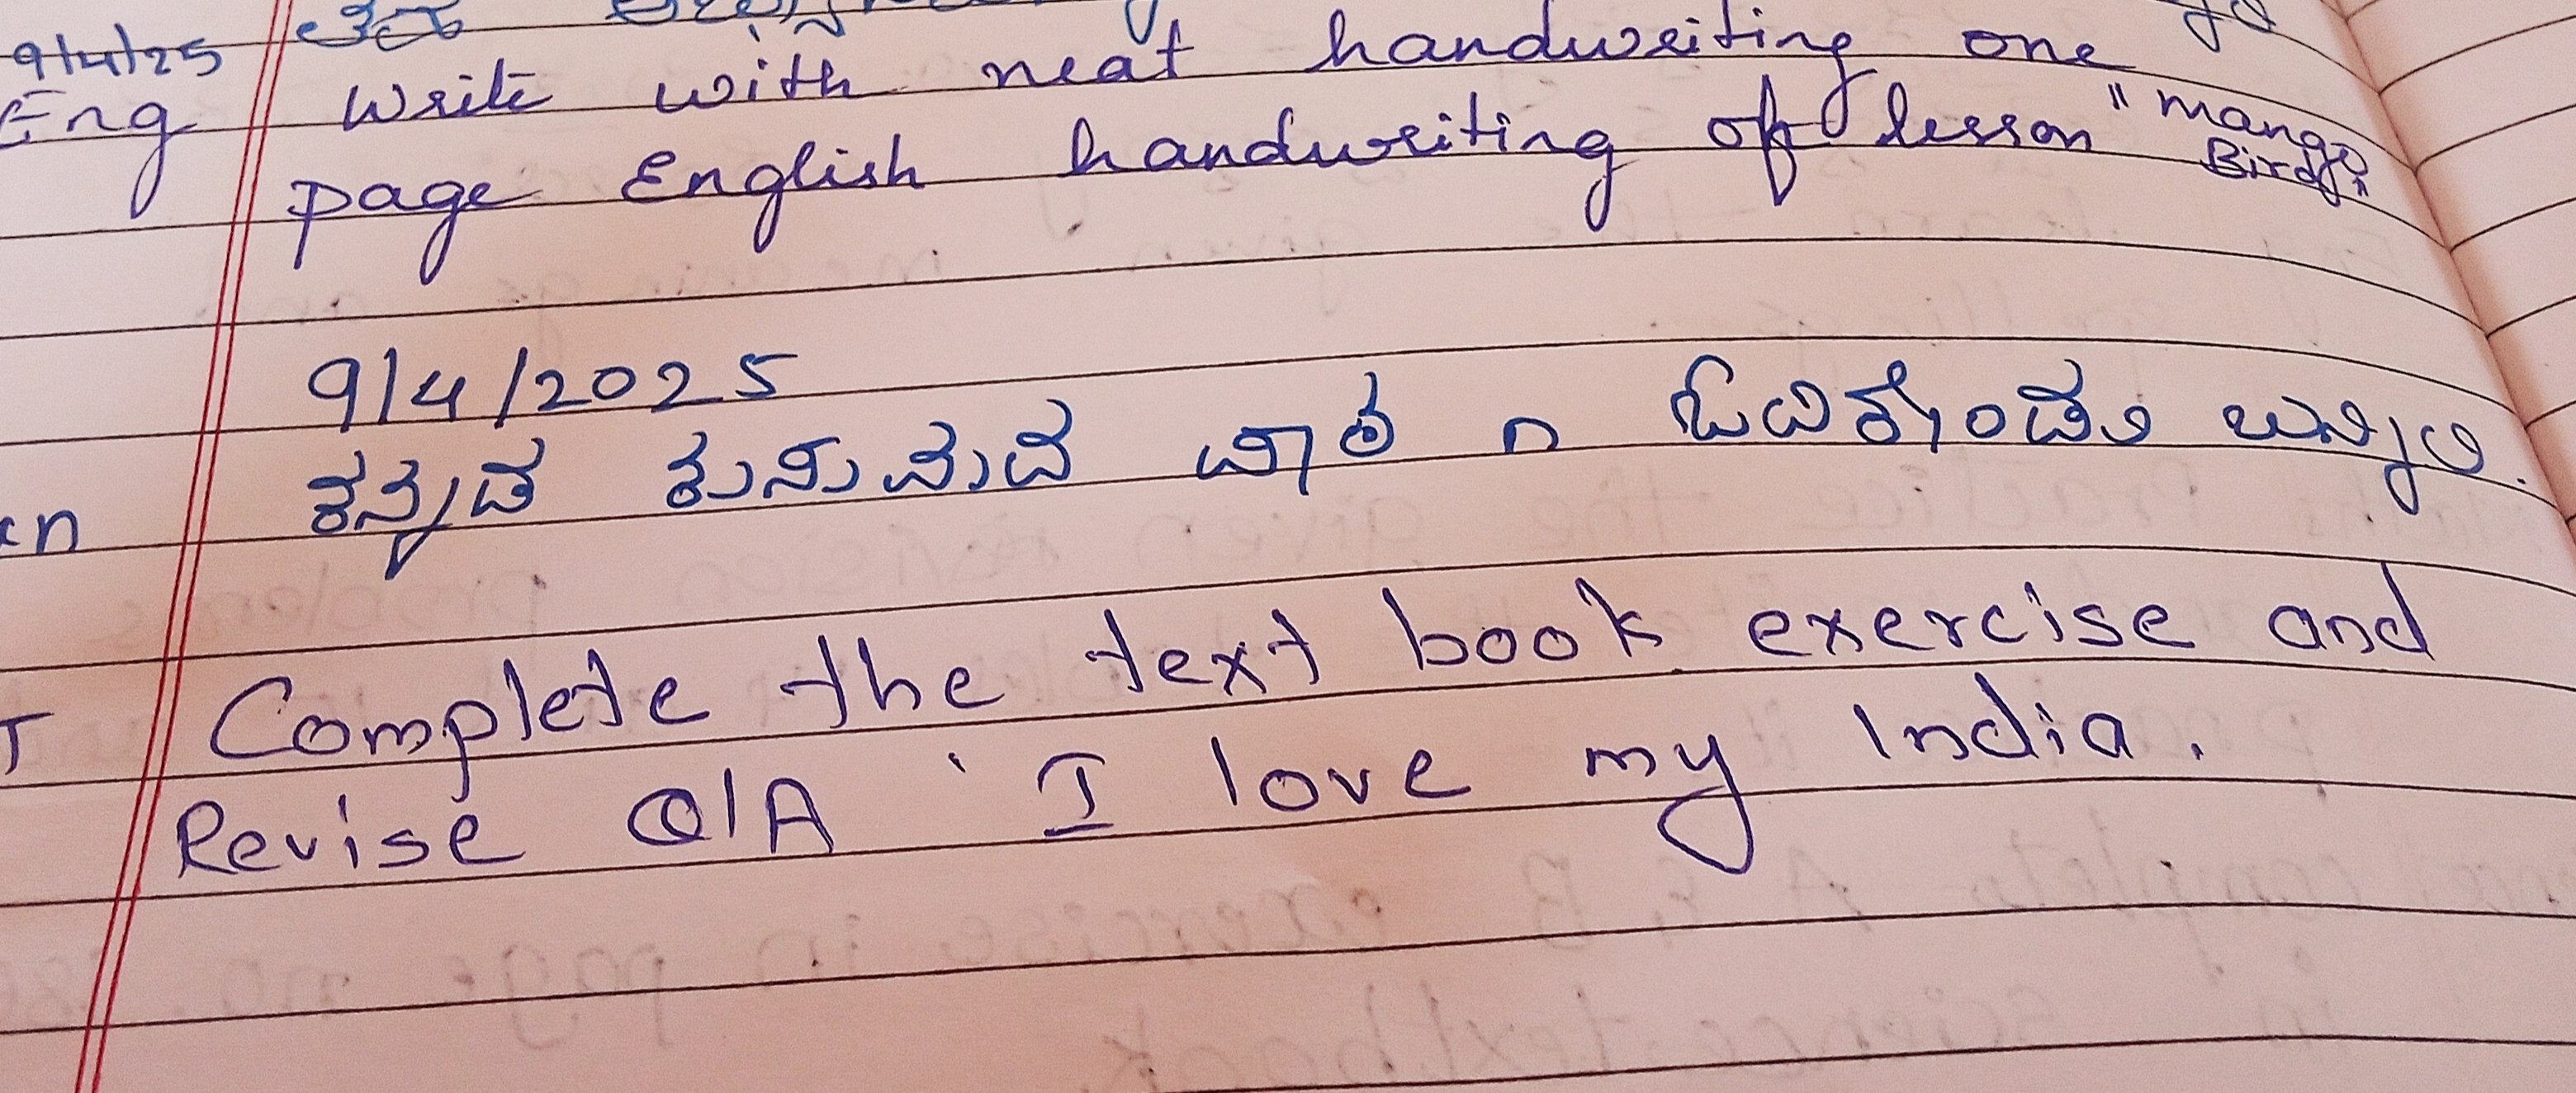 9/4/25
Eng write with neat handwriting one
page English handwriting of lesson "Mango
Bird"
9/4/2025
ಕನ್ನಡ ಕುಸುಮದ ಪಾಠ ೧ ಓದಿಕೊಂಡು ಬನ್ನಿರಿ.
Complete the text book exercise and
Revise Q/A ' I love my India.